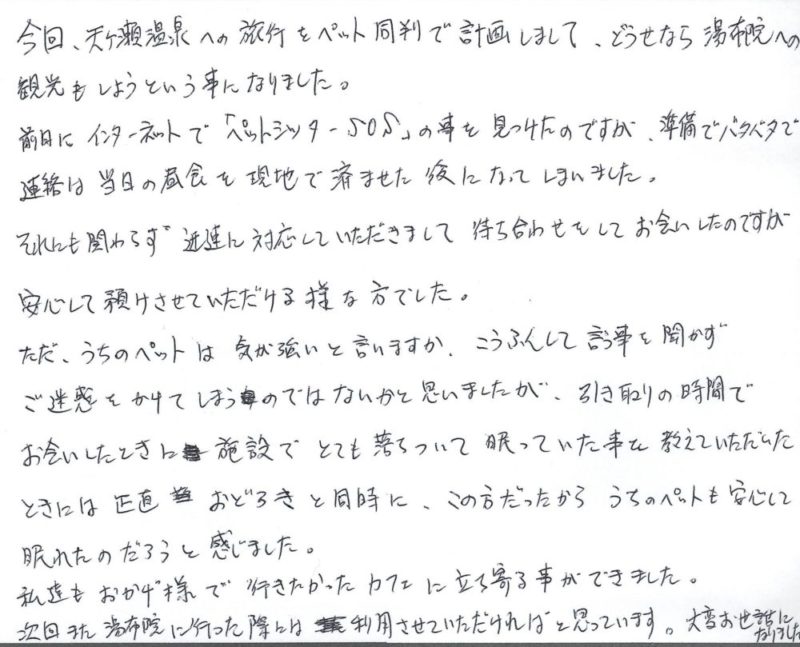 今回、天ヶ瀬温泉への旅行をペット同判で計画しまして、どうせなら湯布院への
観光もしようという事になりました。
前日にインターネットで「ペットシッターSOS」の事を見つけたのですが、準備でバタバタで
連絡は当日の昼食を現地で済ませた後になってしまいました。
それにも関わらず迅速に対応していただきまして待ち合わせをしてお会いしたのですが
安心して預けさせていただける様な方でした。
ただ、うちのペットは気が強いと言いますか、こうふんして言う事を聞かず
ご迷惑をかけてしまうのではないかと思いましたが、引き取りの時間で
お会いしたときに施設でとても落ちついて眠っていた事を教えていただいた
ときには正直おどろきと同時に、この方だったからうちのペットも安心して
眠れたのだろうと感じました。
私達もおかげ様で行きたかったカフェに立ち寄る事ができました。
次回また湯布院に行った際には利用させていただければと思っています。大変お世話に
なりました